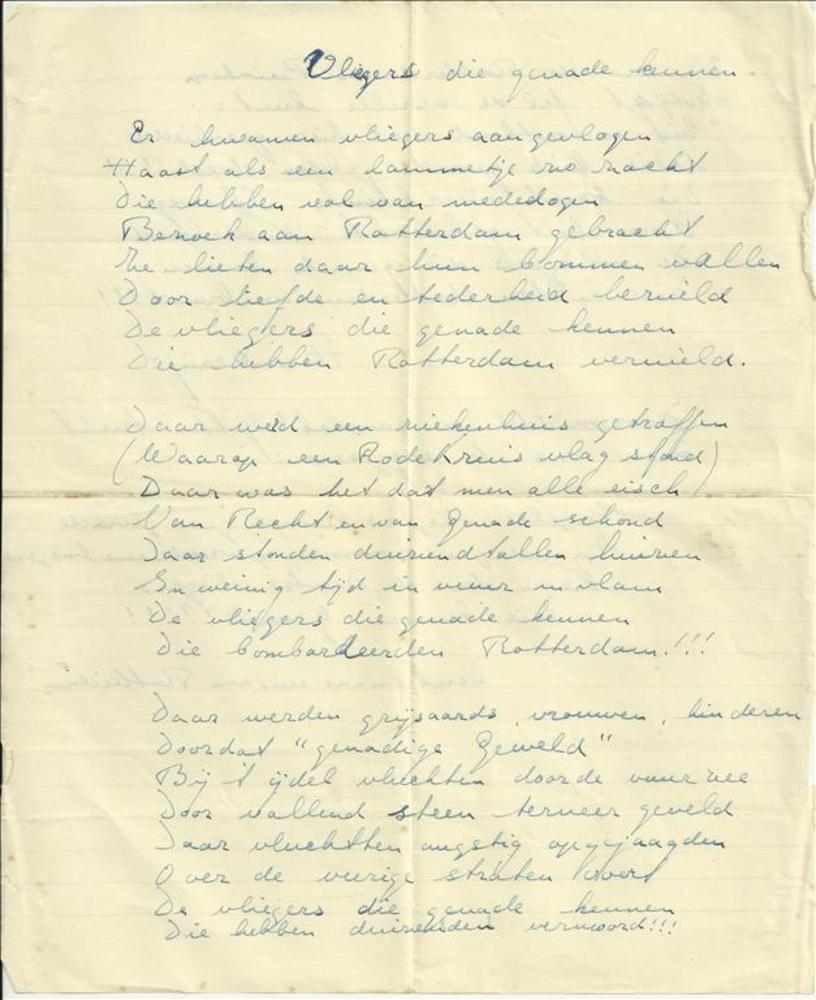 Vliegers die genade kennen
Er kwamen vliegers aangevlogen
Haast als een lammetje zo zacht
Die hebben vol van mededogen
Bezoek aan Rotterdam gebracht
Ze lieten daar hun bommen vallen
Door liefde en tederheid bezield
De vliegers die genade kennen
Die hebben Rotterdam vernield.
Daar werd een ziekenhuis getroffen
(Waarop een Rode Kruis vlag stond)
Daar was het dat men alle eisch
Van Recht en van Genade schond
Daar stonden duizendtallen huizen
In weinig tijd in vuur en vlam
De vliegers die genade kennen
Die bombardeerden Rotterdam!!!
Daar werden grijsaards, vrouwen, kinderen
Door dat "genadige Geweld"
Bij 't ijdel vluchten door de vuurzee
Door vallend steen terneer geveld
Daar vluchtten angstig opgejaagden
Over de vurige straten voort
De vliegers die genade kennen
Die hebben duizenden vermoord!!!